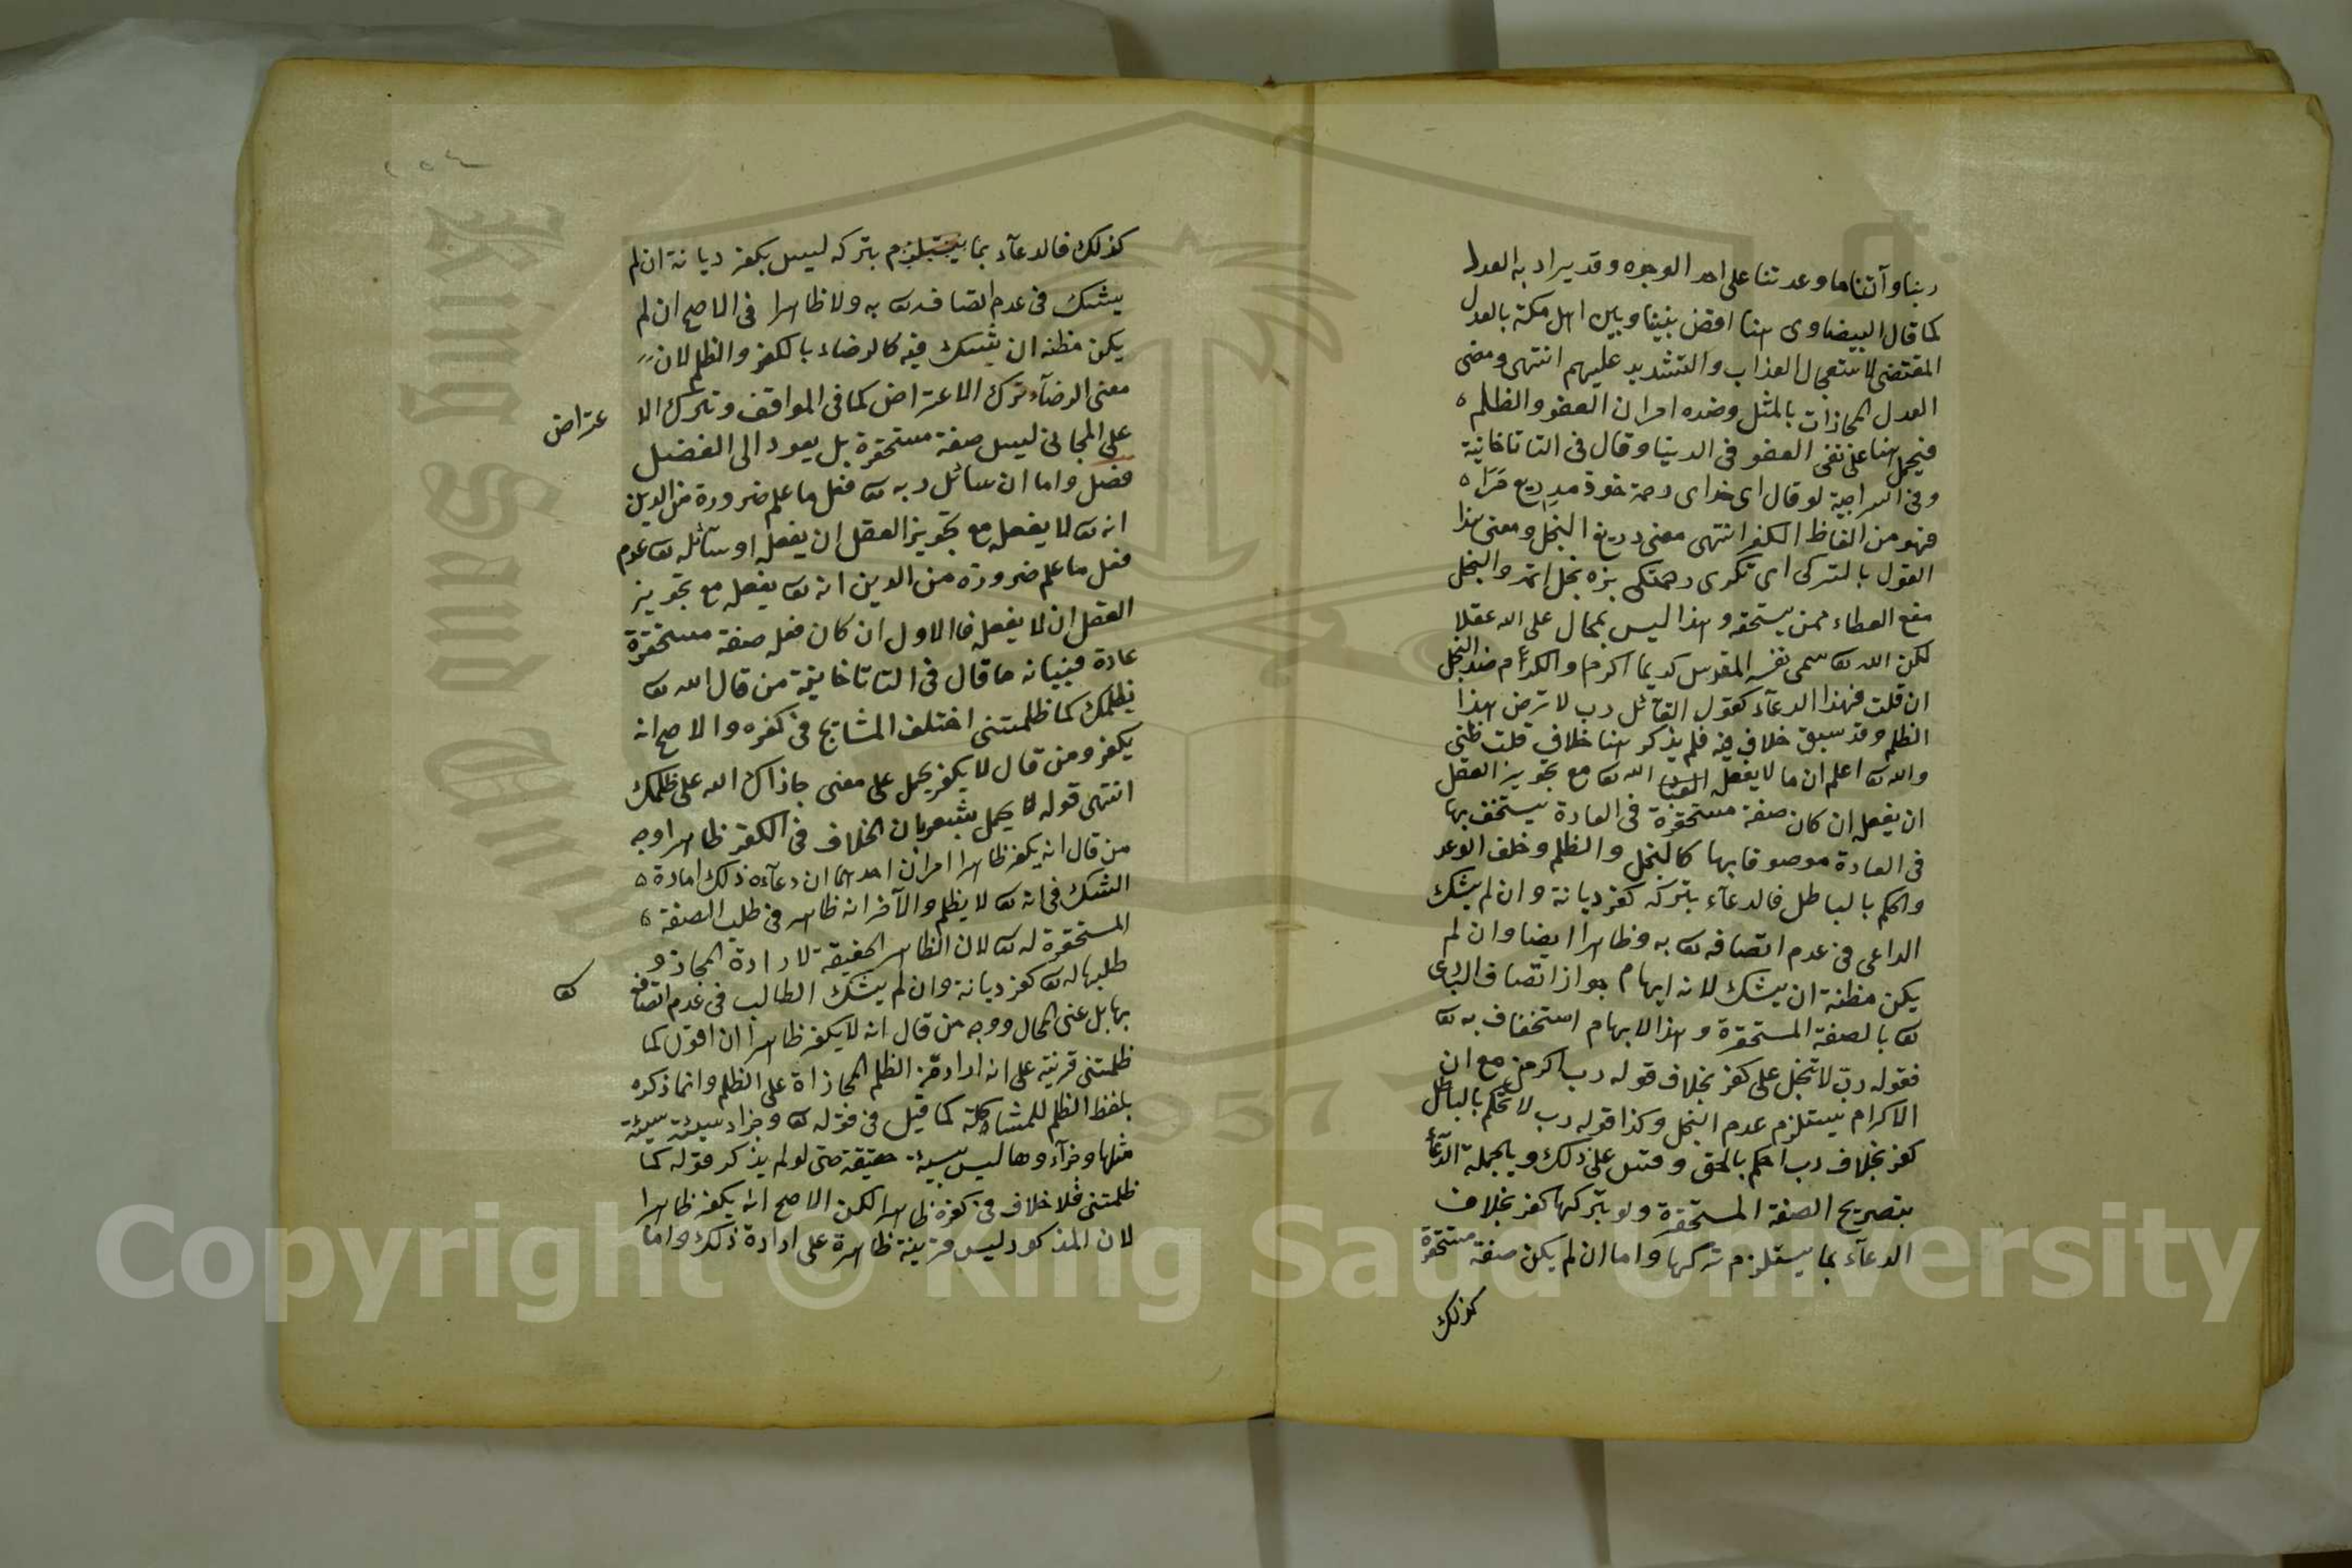 ربنا وآتنا ما وعدتنا على احد الوجوه وقد يراد به العدل
كما قال البيضاوى هنا اقض بيننا وبين اهل مكة بالعدل
المقتضى لاستعجال العذاب والتشديد عليهم انتهى ومعنى
العدل المجازات بالمثل وضده امران العفو والظلم
فيحمل هنا على نفى العفو فى الدنيا وقال فى التاتاخانية
وفى السراجية لو قال اى خداى رحمة خود مدريغ
فهو من الفاظ الكفر انتهى معنى دريغ البخل ومعنى هذا
القول بالتركى اى تكرى رحمتكى بزه بخل اتمه والبخل
منع العطاء ممن يستحقه وهذا ليس بمحال على الله عقلا
لكن الله تع سمى نفسه المقدس كريما اكرم والكرام ضد البخل
ان قلت فهذا الدعآء كقول القائل رب لا ترض هذا
الظلم وقد سبق خلاف فيه فلم يذكر هنا خلاف قلت ظنى
والله تع اعلم ان ما لا يفعله الله تع مع تجويز العقل
ان يفعله ان كان صفة مستحقرة فى العادة يستخف بها
فى العادة موصوفا بها كالبخل والظلم وخلف الوعد
والحكم بالباطل فالدعآء بتركه كفر ديانة وان لم يشك
الداعى فى عدم اتصافه تع به وظاهرا ايضا وان لم
يكن مظنة ان يشك لانه ايهام جواز اتصاف البارى
تع بالصفة المستحقرة وهذا الايهام استخفاف به تع
فقوله رب لا تبخل على كفر بخلاف قوله رب اكرمنى مع ان
الاكرام يستلزم عدم البخل وكذا قوله رب لا تحكم بالباطل
كفر بخلاف رب احكم بالحق وقس على ذلك وبالجملة الدعآء
بتصريح الصفة المستحقرة ولو بتركها كفر بخلاف
الدعآء بما يستلزم تركها واما ان لم يكن صفة مستحقرة
كذلك
كذلك فالدعآء بما يستلزم بتركه ليس بكفر ديانة ان لم
يشك فى عدم اتصافه تع به ولا ظاهرا فى الاصح ان لم
يكن مظنه ان يشك فيه كالرضاء بالكفر والظلم لان
معنى الرضآء ترك الاعتراض كما فى المواقف وترك الا
عتراض
على المجانى ليس صفة مستحقرة بل يعود الى الفضل
فصل واما ان سائل ربه تع فعل ما علم ضرورة من الدين
انه تع لا يفعله مع تجويز العقل ان يفعله او سآئله تع عدم
فعل ما علم ضرورة من الدين انه تع يفعله مع تجويز
العقل ان لا يفعله فالاول ان كان فعله صفة مستحقرة
عادة فبيانه ما قال فى التاتاخانية من قال الله تع
يظلمك كما ظلمتنى اختلف المشايخ فى كفره والاصح انه
يكفر ومن قال لا يكفر يحمل على معنى جازاك الله على ظلمك
انتهى قوله لا يحمل يشعر بان الخلاف فى الكفر ظاهرا وجه
من قال انه يكفر ظاهرا امران احدهما ان دعآءه ذلك امارة
الشك فى انه تع لا يظلم والآخر انه ظاهر فى طلب الصفة
المستحقرة له تع لان الظاهر الحقيقة لا ارادة المجاز و
طلبها له تع كفر ديانة وان لم يشك الطالب فى عدم اتصافه
تع
بها بل عنى المحال ووجه من قال انه لا يكفر ظاهرا ان اقول كما
ظلمتنى قرينة على انه اراد من الظلم المجازاة على الظلم وانما ذكره
بلفظ الظلم للمشاكلة كما قيل فى قوله تع وجزاء سيئة سيئة
مثلها وجزآءوها ليس بسيئة حقيقة حتى لو لم يذكر قوله كما
ظلمتنى فلا خلاف فى كفره ظاهرا لكن الاصح انه يكفر ظاهرا
لان المذكور ليس قرينة ظاهرة على ارادة ذلك واما
King Saud University
1957
Copyright © King Saud University